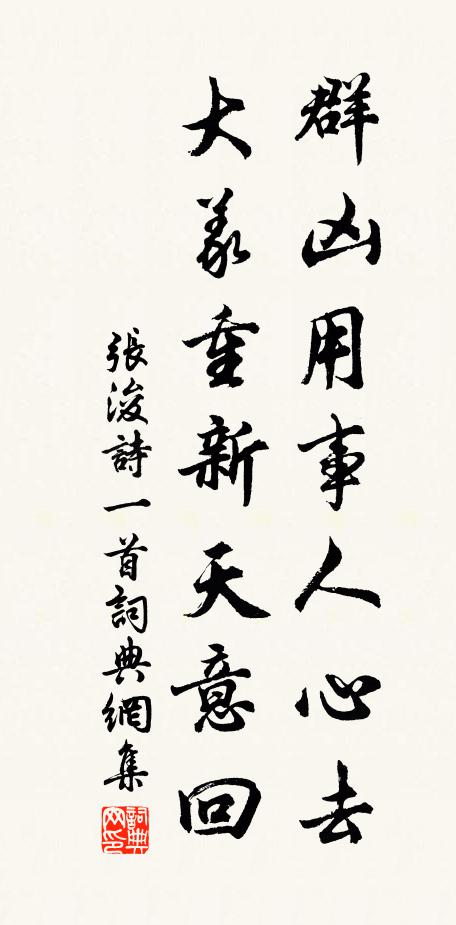 群凶用事人心去
大義重新天意回
張浚詩一首詞典網集
詞典网印